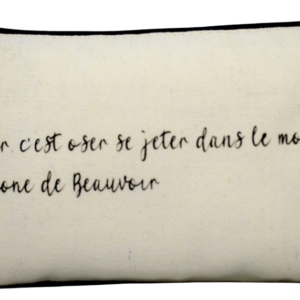 r c'est oser se jeter dans le mo
one de Beauvoir